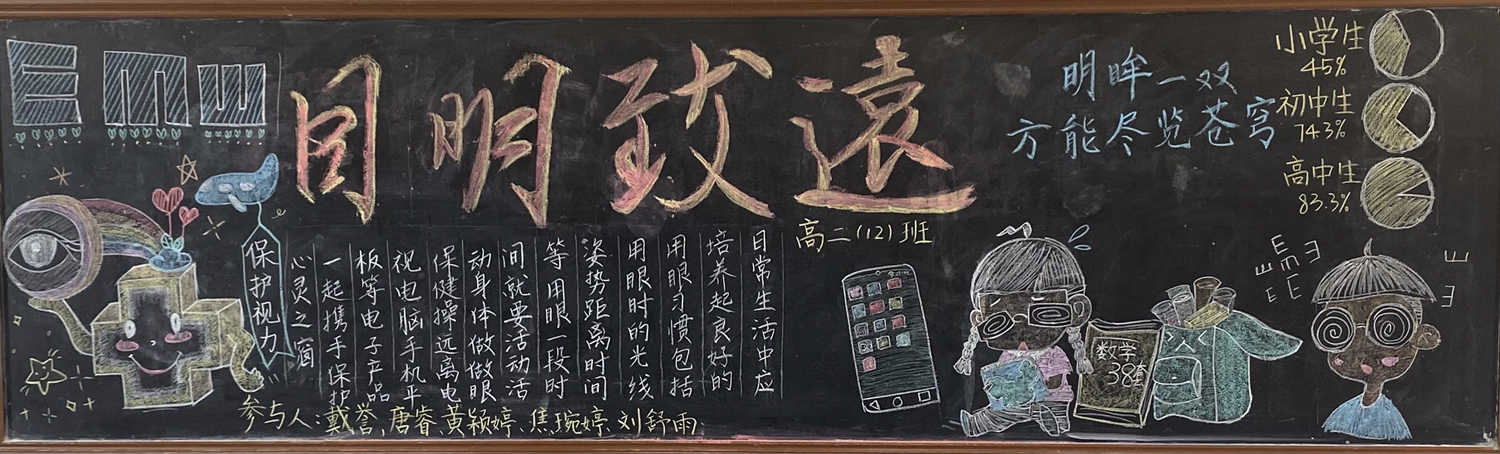 E m W
目明致遠
高二(12)班
明眸一双
方能尽览苍穹
小学生
45%
初中生
74.3%
高中生
83.3%
保护视力
日常生活中应
培养起良好的
用眼习惯包括
用眼时的光线
姿势距离时间
等用眼一段时
间就要活动活
动身体做做眼
保健操远离电
视电脑手机平
板等电子产品
一起携手保护
心灵之窗
数学
38套
E m E
E E E
E
E
参与人:戴誉、唐睿、黄颖婷、焦琬婷、刘舒雨